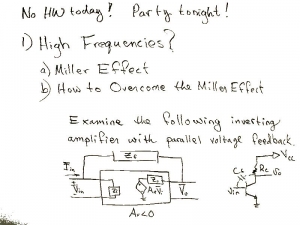 No HW today! Party tonight!
1) High Frequencies?
a) Miller Effect
b) How to Overcome the Miller Effect
Examine the following inverting
amplifier with parallel voltage feedback.
Zf
Iin
Vin
Zi
Zo
AvVi
Vo
Av<0
Vcc
Rc
Cf
Vo
Vin